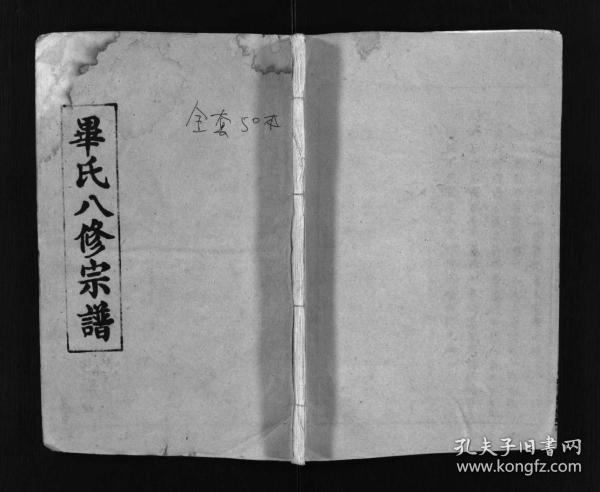 畢氏八修宗譜
全套50本
孔夫子旧書网
www.kongfz.com